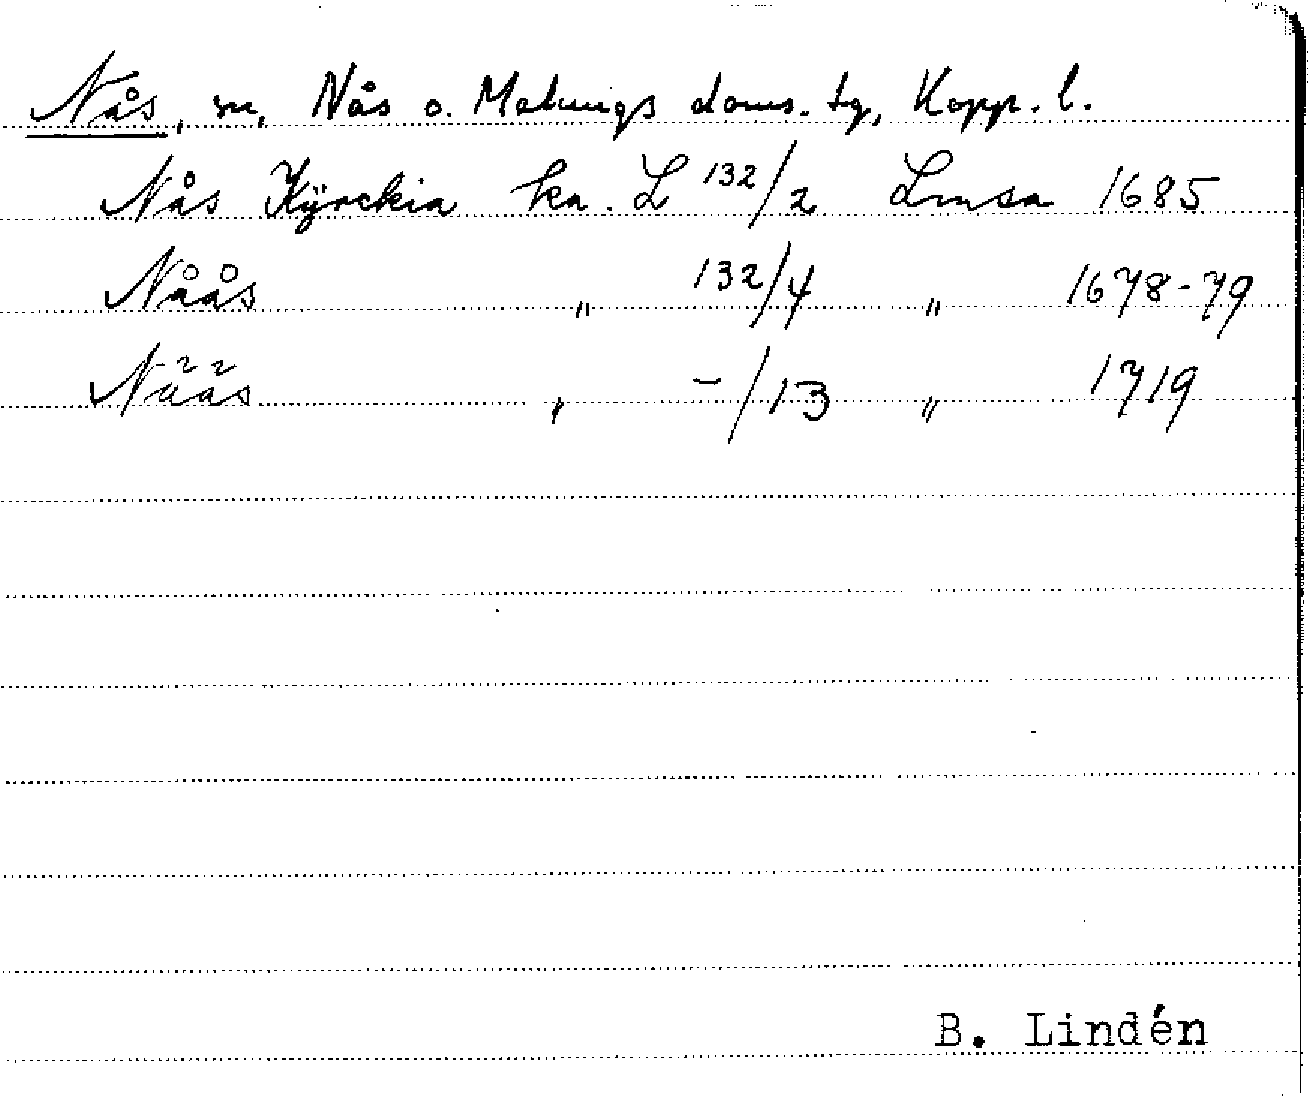 Nås, sn, Nås o. Malungs doms. tg, Kopp. l.
Nås Kÿrckia ka. L 132/2 Lmsa 1685
Nåås " 132/4 " 1678-79
Nääs " -/13 " 1719
B. Lindén